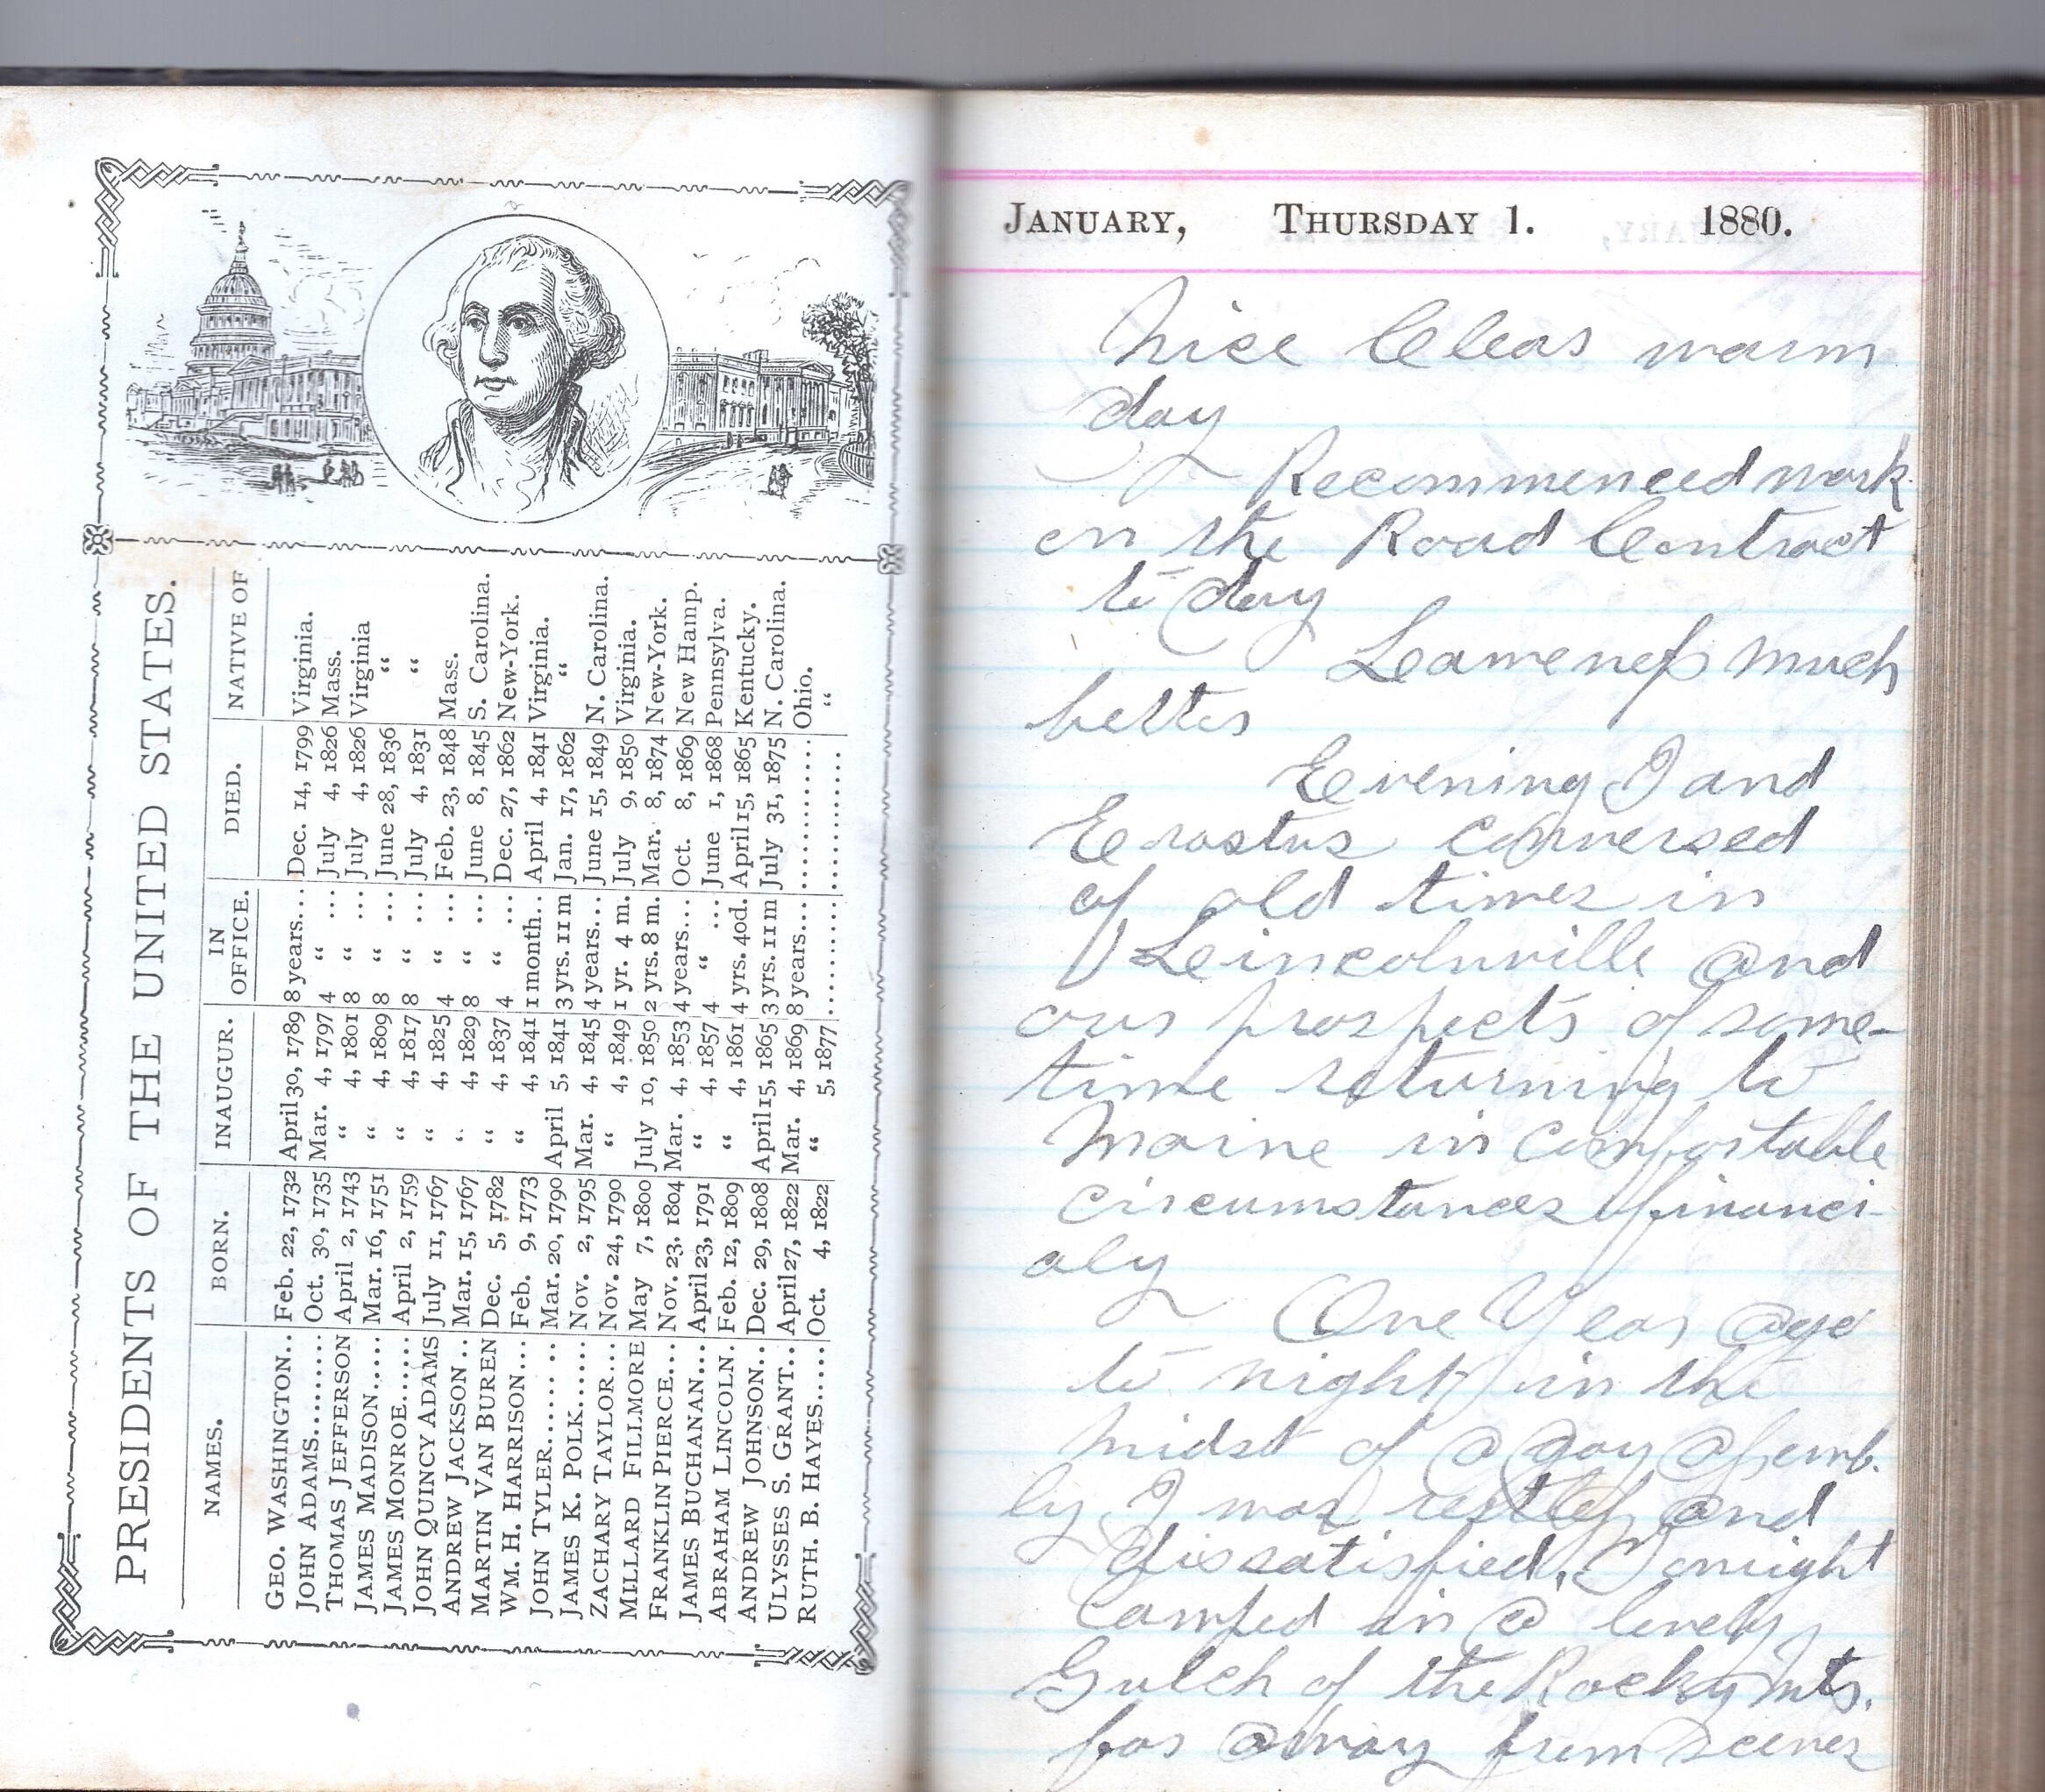 PRESIDENTS OF THE UNITED STATES.
NAMES. BORN. INAUGUR. IN OFFICE. DIED. NATIVE OF
GEO. WASHINGTON.. Feb. 22, 1732 April 30, 1789 8 years... Dec. 14, 1799 Virginia.
JOHN ADAMS.......... Oct. 30, 1735 Mar. 4, 1797 4 “ ... July 4, 1826 Mass.
THOMAS JEFFERSON April 2, 1743 “ 4, 1801 8 “ ... July 4, 1826 Virginia
JAMES MADISON..... Mar. 16, 1751 “ 4, 1809 8 “ ... June 28, 1836 “
JAMES MONROE...... April 2, 1759 “ 4, 1817 8 “ ... July 4, 1831 “
JOHN QUINCY ADAMS July 11, 1767 “ 4, 1825 4 “ ... Feb. 23, 1848 Mass.
ANDREW JACKSON .. Mar. 15, 1767 “ 4, 1829 8 “ ... June 8, 1845 S. Carolina.
MARTIN VAN BUREN Dec. 5, 1782 “ 4, 1837 4 “ ... Dec. 27, 1862 New-York.
WM. H. HARRISON... Feb. 9, 1773 “ 4, 1841 1 month.. April 4, 1841 Virginia.
JOHN TYLER...... .. Mar. 20, 1790 April 5, 1841 3 yrs. 11 m Jan. 17, 1862 “
JAMES K. POLK....... Nov. 2, 1795 Mar. 4, 1845 4 years... June 15, 1849 N. Carolina.
ZACHARY TAYLOR.... Nov. 24, 1790 “ 4, 1849 1 yr. 4 m. July 9, 1850 Virginia.
MILLARD FILLMORE May 7, 1800 July 10, 1850 2 yrs. 8 m. Mar. 8, 1874 New-York.
FRANKLIN PIERCE... Nov. 23, 1804 Mar. 4, 1853 4 years... Oct. 8, 1869 New Hamp.
JAMES BUCHANAN... April 23, 1791 “ 4, 1857 4 “ ... June 1, 1868 Pennsylva.
ABRAHAM LINCOLN. Feb. 12, 1809 “ 4, 1861 4 yrs. 40d. April 15, 1865 Kentucky.
ANDREW JOHNSON.. Dec. 29, 1808 April 15, 1865 3 yrs. 11 m July 31, 1875 N. Carolina.
ULYSSES S. GRANT.. April 27, 1822 Mar. 4, 1869 8 years... ............... Ohio.
RUTH. B. HAYES..... Oct. 4, 1822 “ 5, 1877 ........... ............... “
JANUARY, THURSDAY 1. 1880.
Nice Clear warm
day
Recommenced work
on the Road Contract
to day
Lameness much
better
Evening I and
Erastus conversed
of old times in
Lincolnville and
our prospects of some-
time returning to
Maine in comfortable
circumstances financi-
aly
One Year ago
to night in the
midst of a gay assemb-
ly I was restless and
dissatisfied. Tonight
camped in a lonely
Gulch of the Rocky Mts.
far away from scenes